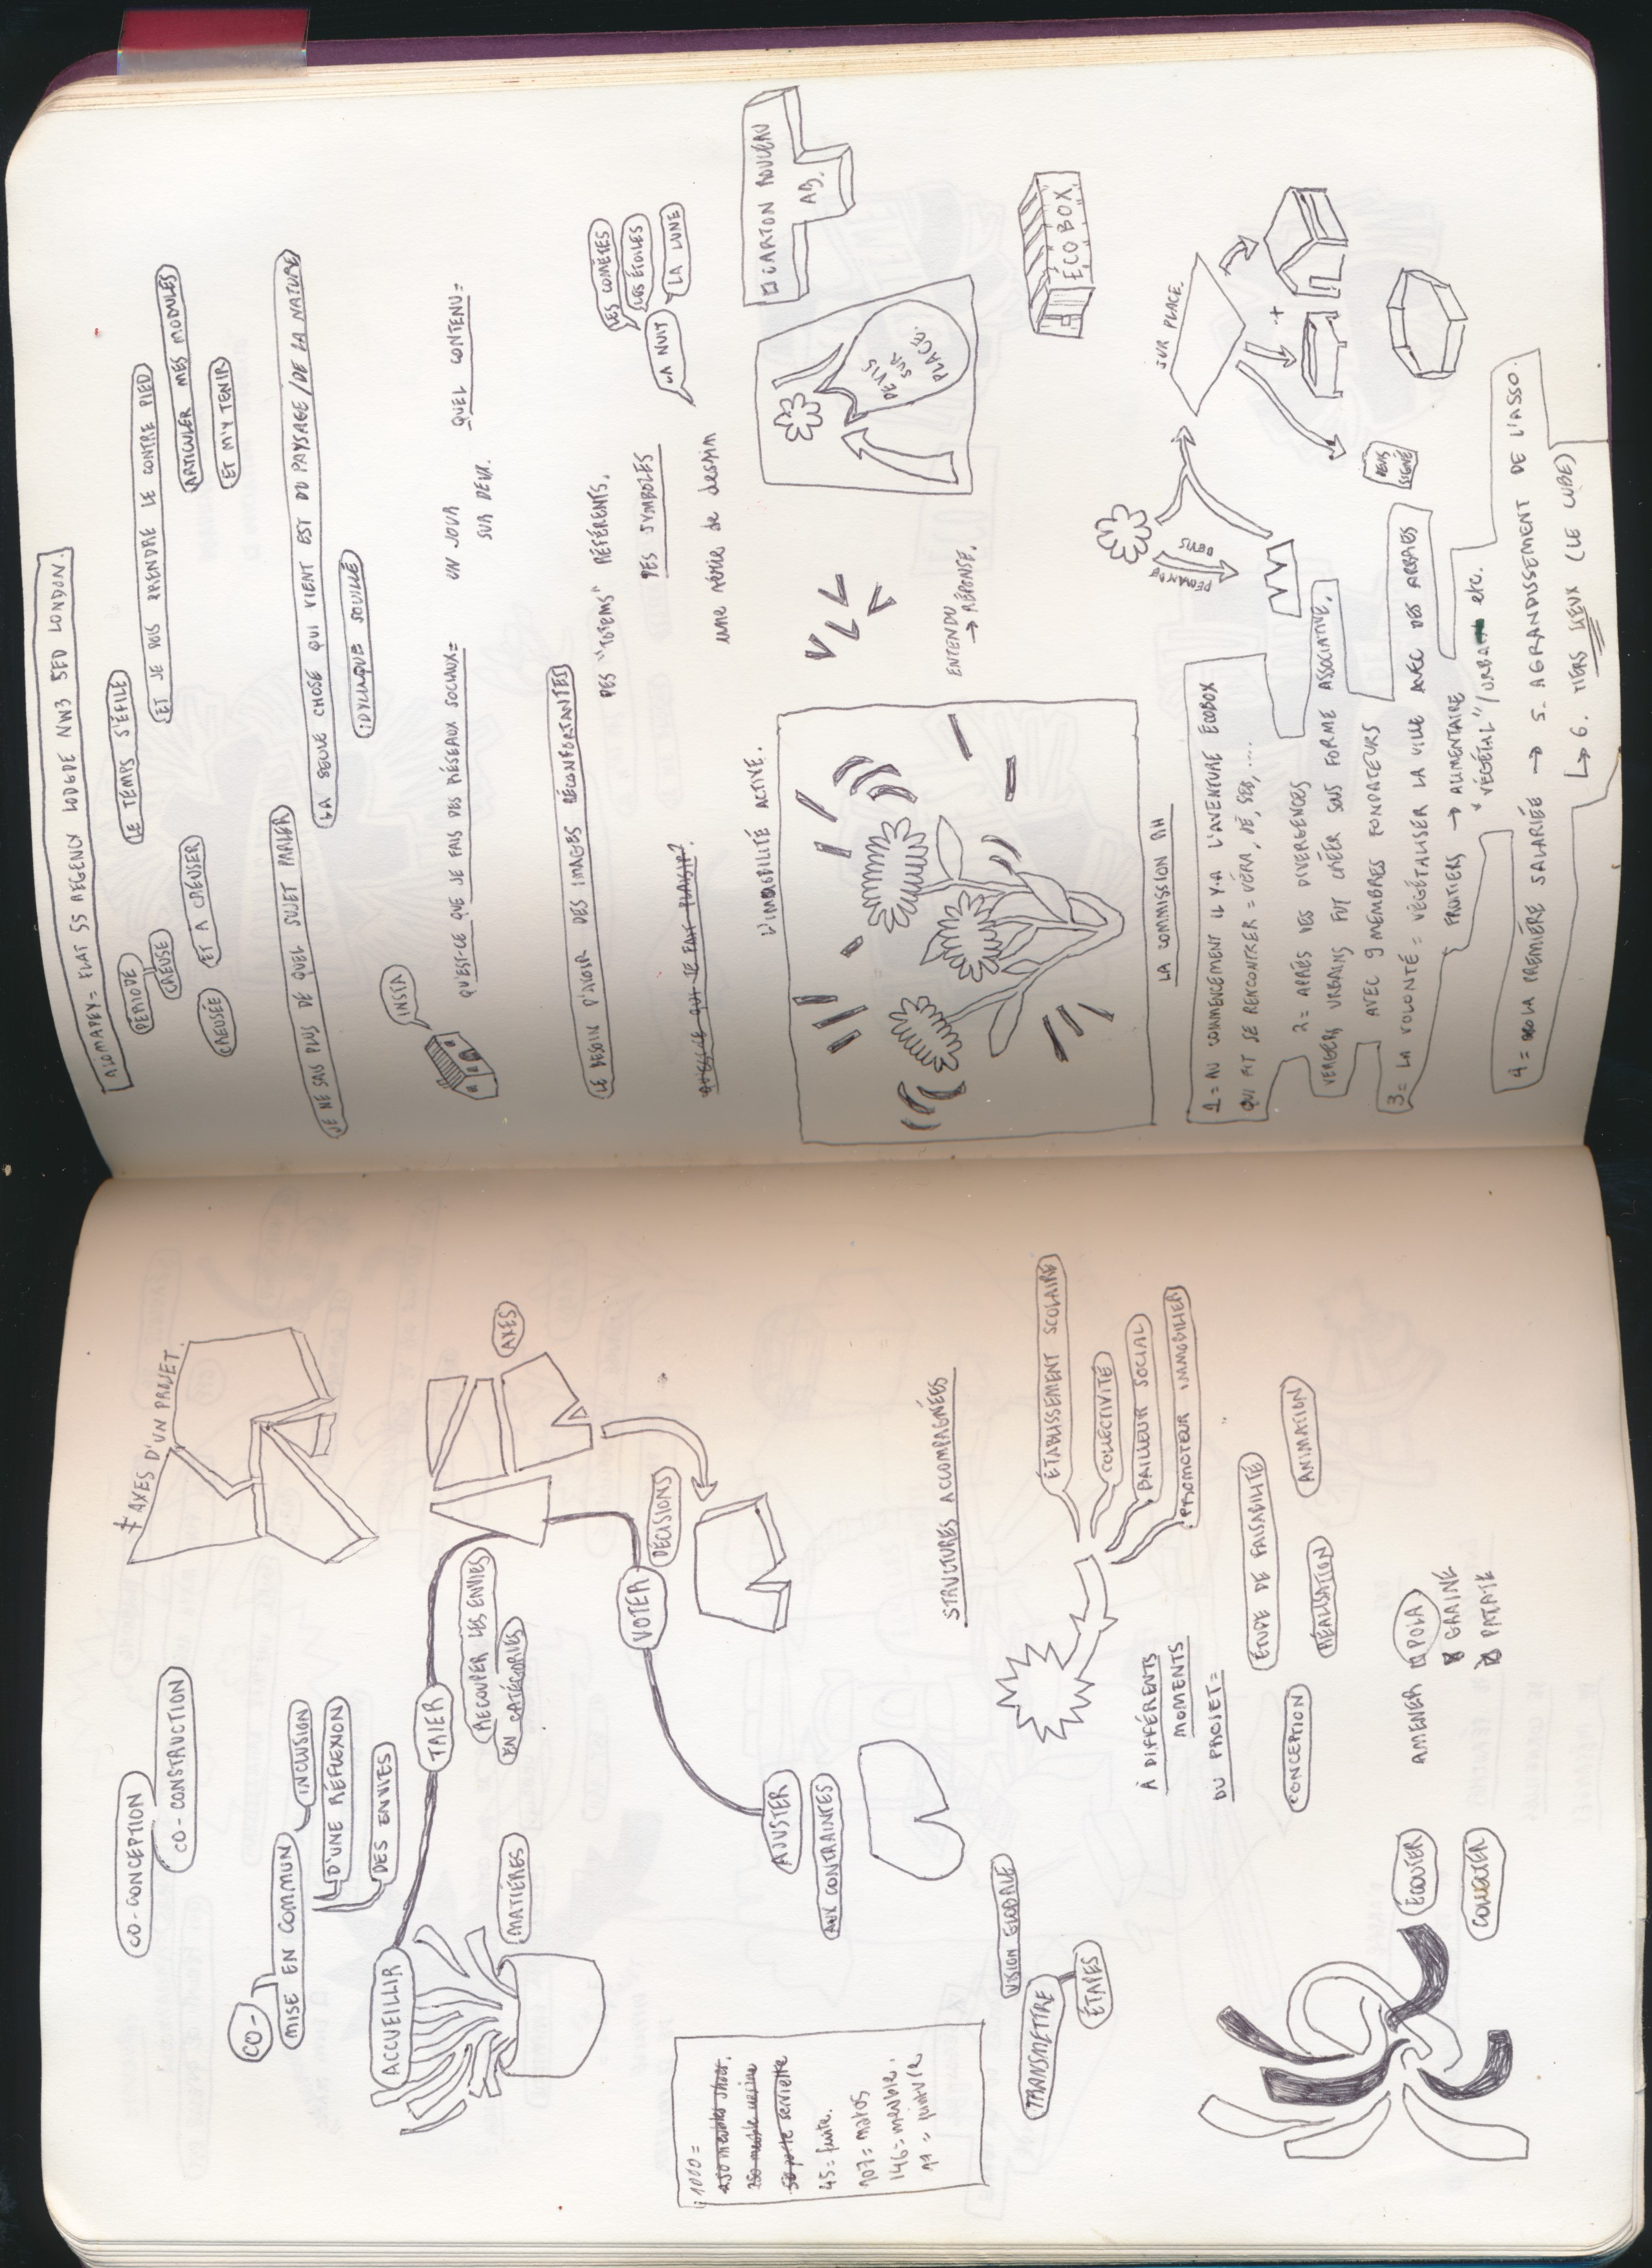 CO-CONCEPTION
CO-CONSTRUCTION
CO-
MISE EN COMMUN
INCLUSION
D'UNE RÉFLEXION
DES ENVIES
AXES D'UN PROJET.
ACCUEILLIR
TRIER
RECOUPER LES ENVIES
EN CATÉGORIES
MATIÈRES
AXES
VOTER
DÉCISIONS
AJUSTER
AUX CONTRAINTES
1000 =
45 = fuite.
107 = matos
146 = meuble.
VISION GLOBALE
TRANSMETTRE
ÉTAPES
STRUCTURES ACCOMPAGNÉES
ÉTABLISSEMENT SCOLAIRE
COLLECTIVITÉ
BAILLEUR SOCIAL
PROMOTEUR IMMOBILIER
À DIFFÉRENTS
MOMENTS
DU PROJET =
ÉTUDE DE FAISABILITÉ
CONCEPTION
RÉALISATION
ANIMATION
ÉCOUTER
COLLECTER
AMENER POLA
GRAINE
PATATE
FLAT 55 REGENCY LODGDE NW3 5ED LONDON.
PÉRIODE
CREUSE
LE TEMPS S'ÉFILE
ET JE DOIS PRENDRE LE CONTRE PIED
ARTICULER MES MODULES
CREUSÉE
ET À CREUSER
ET M'Y TENIR
JE NE SAIS PLUS DE QUEL SUJET PARLER
LA SEULE CHOSE QUI VIENT EST DU PAYSAGE/DE LA NATURE
IDYLLIQUE SOUILLÉ
INSTA
QU'EST-CE QUE JE FAIS DES RÉSEAUX SOCIAUX =
UN JOUR
SUR DEUX.
QUEL CONTENU =
LE BESOIN D'AVOIR DES IMAGES RÉCONFORTANTES
DES "TOTEMS" RÉFÉRENTS.
DES SYMBOLES
une série de dessin
LES COMÈTES
LES ÉTOILES
LA NUIT
LA LUNE
QU'EST-CE QUI TE FAIT PLAISIR?
L'IMMOBILITÉ ACTIVE.
CARTON ROULEAU
AB.
DEVIS
SUR
PLACE.
ENTENDU
→ RÉPONSE.
ÉCOBOX
LA COMMISSION RH
1 = AU COMMENCEMENT IL Y-A L'AVENTURE ECOBOX
QUI FIT SE RENCONTRER = VÉRA, DÉ, SEB, ....
2 = APRÈS DES DIVERGENCES
VERGERS URBAINS FUT CRÉER SOUS FORME ASSOCIATIVE,
AVEC 9 MEMBRES FONDATEURS
3 = LA VOLONTÉ = VÉGÉTALISER LA VILLE AVEC DES ARBRES
FRUITIERS → ALIMENTAIRE
"VÉGÉTAL"/URBAIN etc.
4 = LA PREMIÈRE SALARIÉE → 5. AGRANDISSEMENT DE L'ASSO.
↳ 6. TIERS LIEUX (LE CUBE)
DEMANDE
DEVIS
SUR PLACE.
DEVIS
SIGNÉ